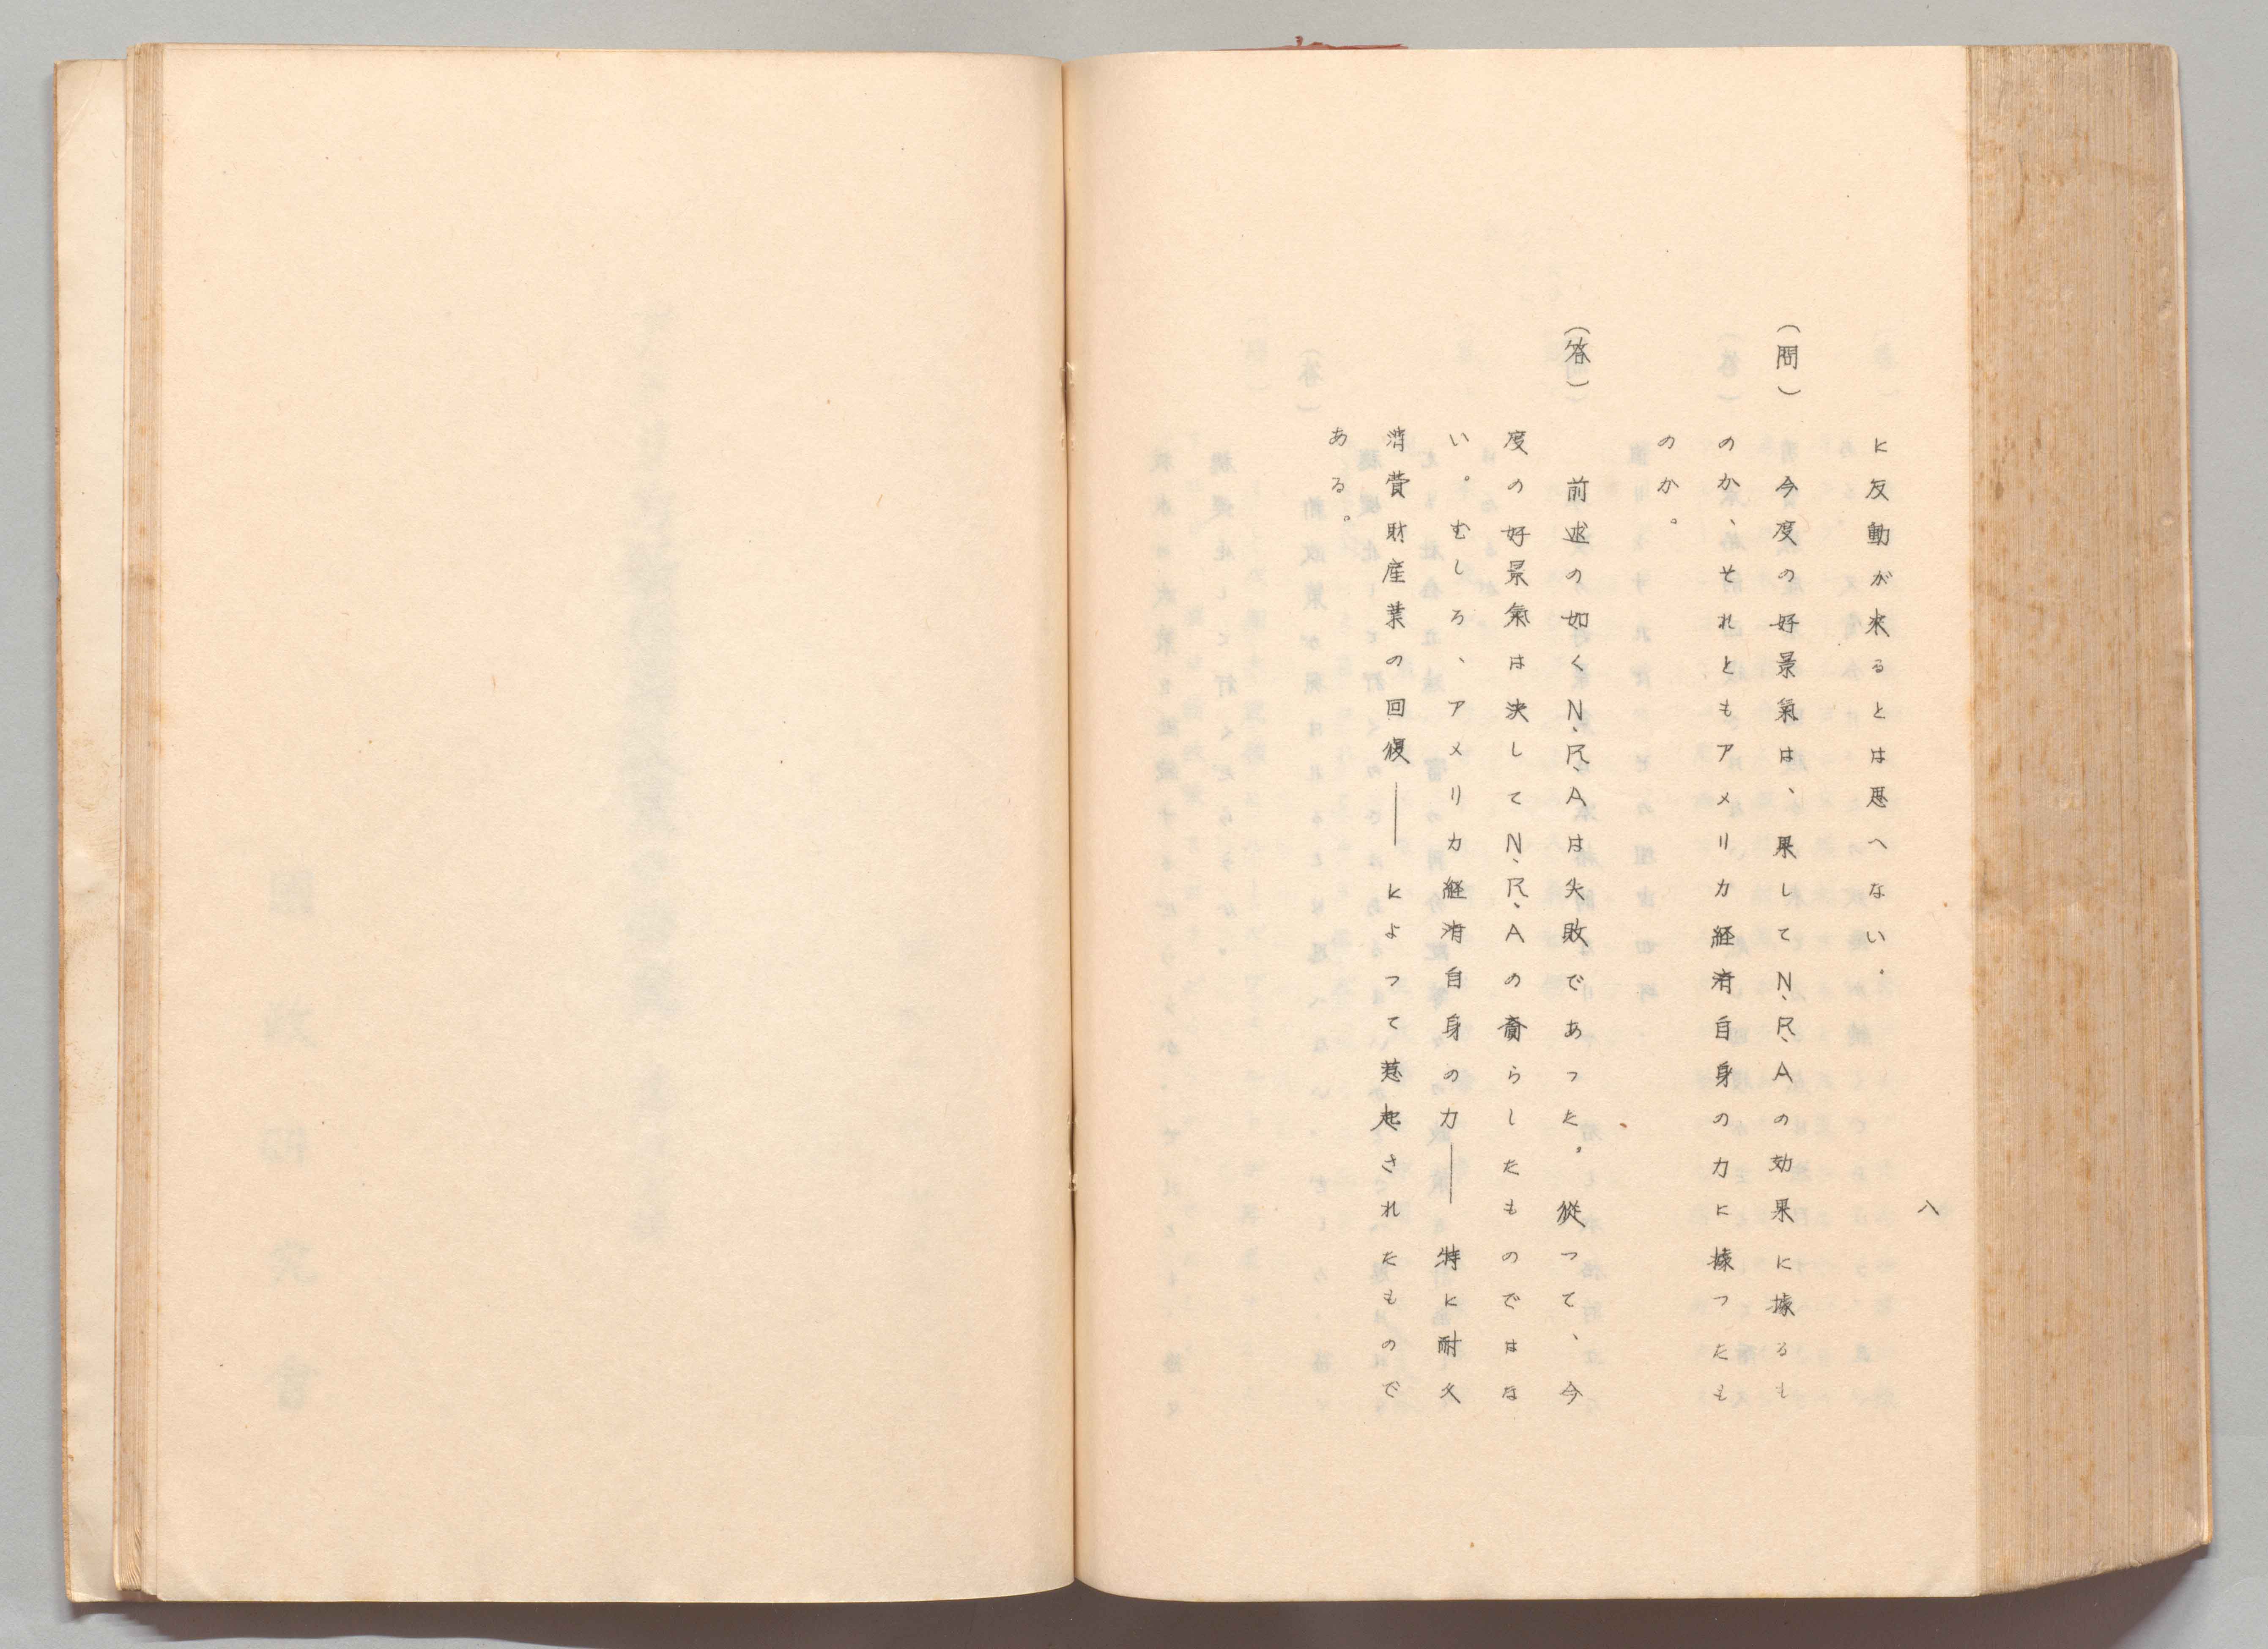 八
に反動が来るとは思へない。
（問）　今度の好景氣は、果してN、R、A の効果に據るも
のか、それともアメリカ経済自身の力に據つたも
のか。
（答）　前述の如くN、R、A は失敗であつた。從つて、今
度の好景氣は決してN、R、A の齎らしたものではな
い。むしろ、アメリカ経済自身の力――特に耐久
消費財産業の回復――によつて惹起されたもので
ある。